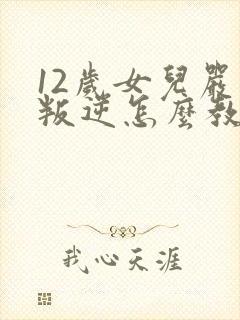 12歲女兒嚴
叛逆怎麼教
我心天涯